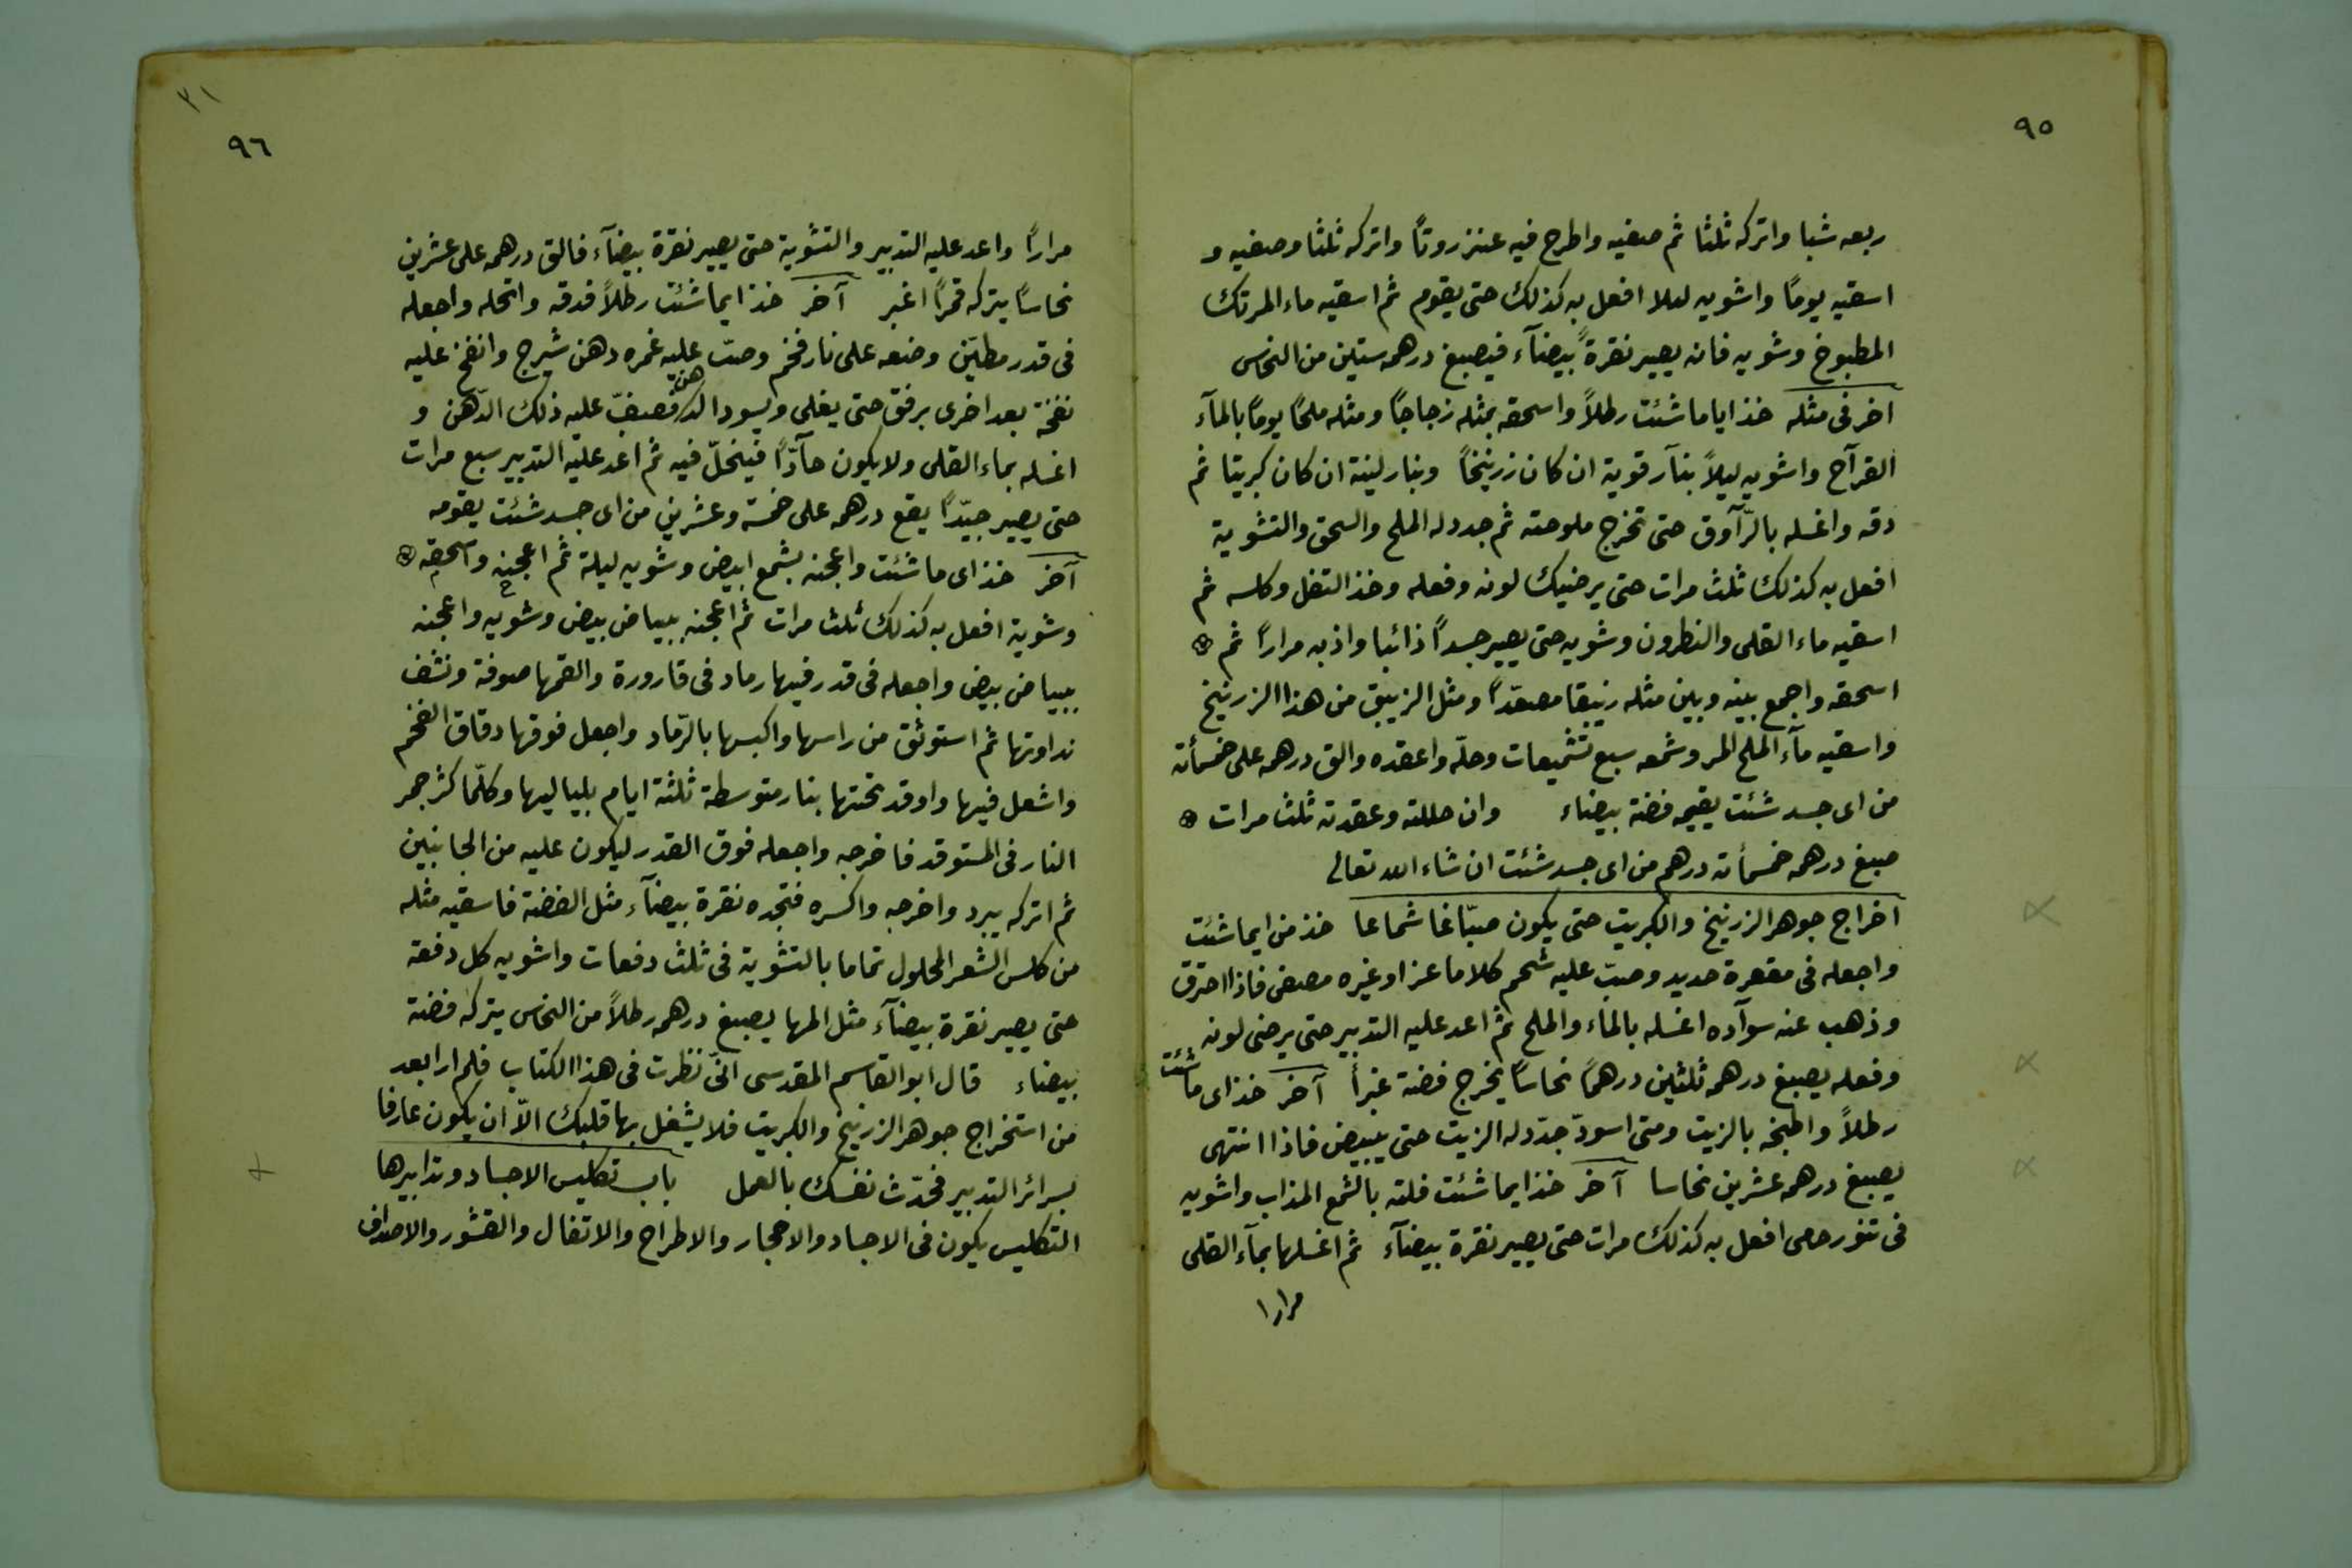 ٩٥
ربعه شبا واتركه ثلثا ثم صفيه واطرح فيه عنزروتًا واتركه ثلثا وصفيه و
اسقيه يومًا واشويه ليلا افعل به كذلك حتى يقوم ثم اسقيه ماء المرتك
المطبوخ وشويه فانه يصير نقرةً بيضآء فيصبغ درهمه ستين من النحاس
اخر فى مثله خذ اياما شئت رطلاً واسحقه بمثله زجاجًا ومثله ملحًا يومًا بالمآء
القرآح واشويه ليلاً بنآر قوية ان كان زرنيخاً وبنار لينة ان كان كبريتا ثم
دقه واغسله بالرّآوق حتى تخرج ملوحته ثم جدد له الملح والسحق والتشوية
افعل به كذلك ثلث مرات حتى يرضيك لونه وفعله وخذ التفل وكلسه ثم
اسقيه ماء القلى والنطرون وشويه حتى يصير جسدًا ذائبا واذبه مرارًا ثم
اسحقه واجمع بينه وبين مثله زيبقا مصعّدًا ومثل الزيبق من هذا الزرنيخ
واسقيه مآء الملح المر وشمعه سبع تشميعات وحله واعقده والق درهمه على خمسمأته
من اى جسد شئت يقيمه فضة بيضاء وان حللته وعقدته ثلث مرات
صبغ درهمه خمسمأته درهم من اى جسد شئت ان شاء الله تعالى
اخراج جوهر الزرنيخ والكبريت حتى يكون صبّاغا شماعا خذ من ايما شئت
واجعله فى مقعرة حديد وصبّ عليه شحم كلا ماعز او غيره مصفى فاذا احترق
وذهب عنه سوآده اغسله بالماء والملح ثم اعد عليه التدبير حتى يرضى لونه
وفعله يصبغ درهمه ثلثين درهمًا نحاسًا يخرج فضة غبرأ آخر خذ اى ما شئت
رطلاً واطبخه بالزيت ومتى اسودّ جدّد له الزيت حتى يبيض فاذا انتهى
يصبغ درهمه عشرين نحاسا آخر خذ ايما شئت فلته بالشمع المذاب واشويه
فى تنور حمى افعل به كذلك مرات حتى يصير نقرة بيضآء ثم اغسلها بمآء القلى
مرارا
٣١
٩٦
مرارًا واعد عليه التدبير والتشوية حتى يصير نقرة بيضآء فالق درهمه على عشرين
نحاسًا يتركه قمرًا اغبر آخر خذ ايما شئت رطلاً فدقه وانخله واجعله
فى قدر مطيّن وضعه على نار فحم وصبّ عليه غمره دهن شيرج وانفخ عليه
نفخة بعد اخرى برفق حتى يغلى ويسود الدهن فصفّ عليه ذلك الدّهن و
اغسله بماء القلى ولا يكون حآدًّا فينحلّ فيه ثم اعد عليه التدبير سبع مرات
حتى يصير جيّدًا يقع درهمه على خمسة وعشرين من اى جسد شئت يقومه
آخر خذ اى ما شئت واعجنه بشمع ابيض وشويه ليلة ثم اعجنه واسحقه
وشوية افعل به كذلك ثلث مرات ثم اعجنه ببياض بيض وشويه واعجنه
ببياض بيض واجعله فى قدر فيها رماد فى قارورة والقمها صوفة ونشف
نداوتها ثم استوثق من راسها واكبسها بالرّماد واجعل فوقها دقاق الفحم
واشعل فيها واوقد تحتها بنار متوسطة ثلثة ايام بلياليها وكلّما كثر جمر
النار فى المستوقد فاخرجه واجعله فوق القدر ليكون عليه من الجانبين
ثم اتركه يبرد واخرجه واكسره فتجده نقرة بيضآء مثل الفضة فاسقيه مثله
من كلس الشعر المحلول تماما بالتشوية فى ثلث دفعات واشويه كل دفعة
حتى يصير نقرة بيضآء مثل المها يصبغ درهمه رطلاً من النحاس يتركه فضة
بيضاء قال ابو القاسم المقدسى انّى نظرت فى هذا الكتاب فلم ار ابعد
من استخراج جوهر الزرنيخ والكبريت فلا يشغل بها قلبك الاّ ان يكون عارفا
بسرائر التدبير فحدّث نفسك بالعمل باب تكليس الاجساد وتدابيرها
التكليس يكون فى الاجساد والاحجار والاطراح والاتفال والقشور والاصداف